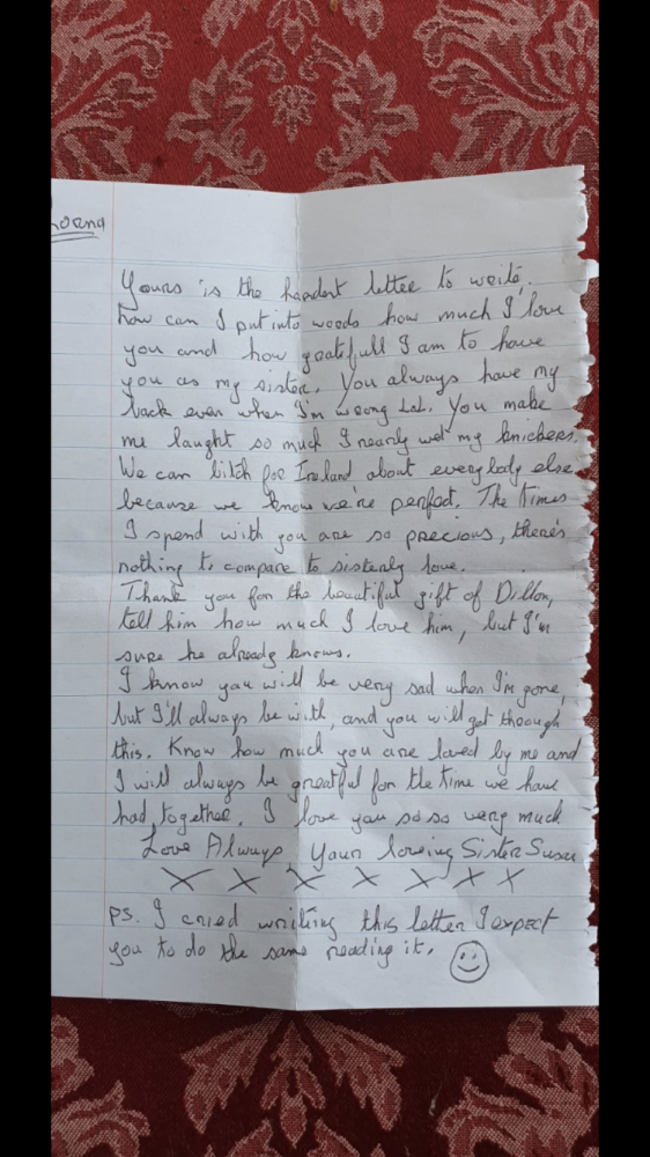 Yours is the hardest letter to write,
how can I put into words how much I love
you and how gratefull I am to have
you as my sister. You always have my
back even when I'm wrong Lol. You make
me laught so much I nearly wet my knickers.
We can bitch for Ireland about everybody else
because we know we're perfect. The times
I spend with you are so precious, there's
nothing to compare to sisterly love.
Thank you for the beautiful gift of Dillon,
tell him how much I love him, but I'm
sure he already knows.
I know you will be very sad when I'm gone,
but I'll always be with, and you will get through
this. Know how much you are loved by me and
I will always be greatful for the time we have
had together. I love you so so very much
Love Always, Your loving Sister Susan
X X X X X X X
PS. I cried writing this letter I expect
you to do the same reading it.